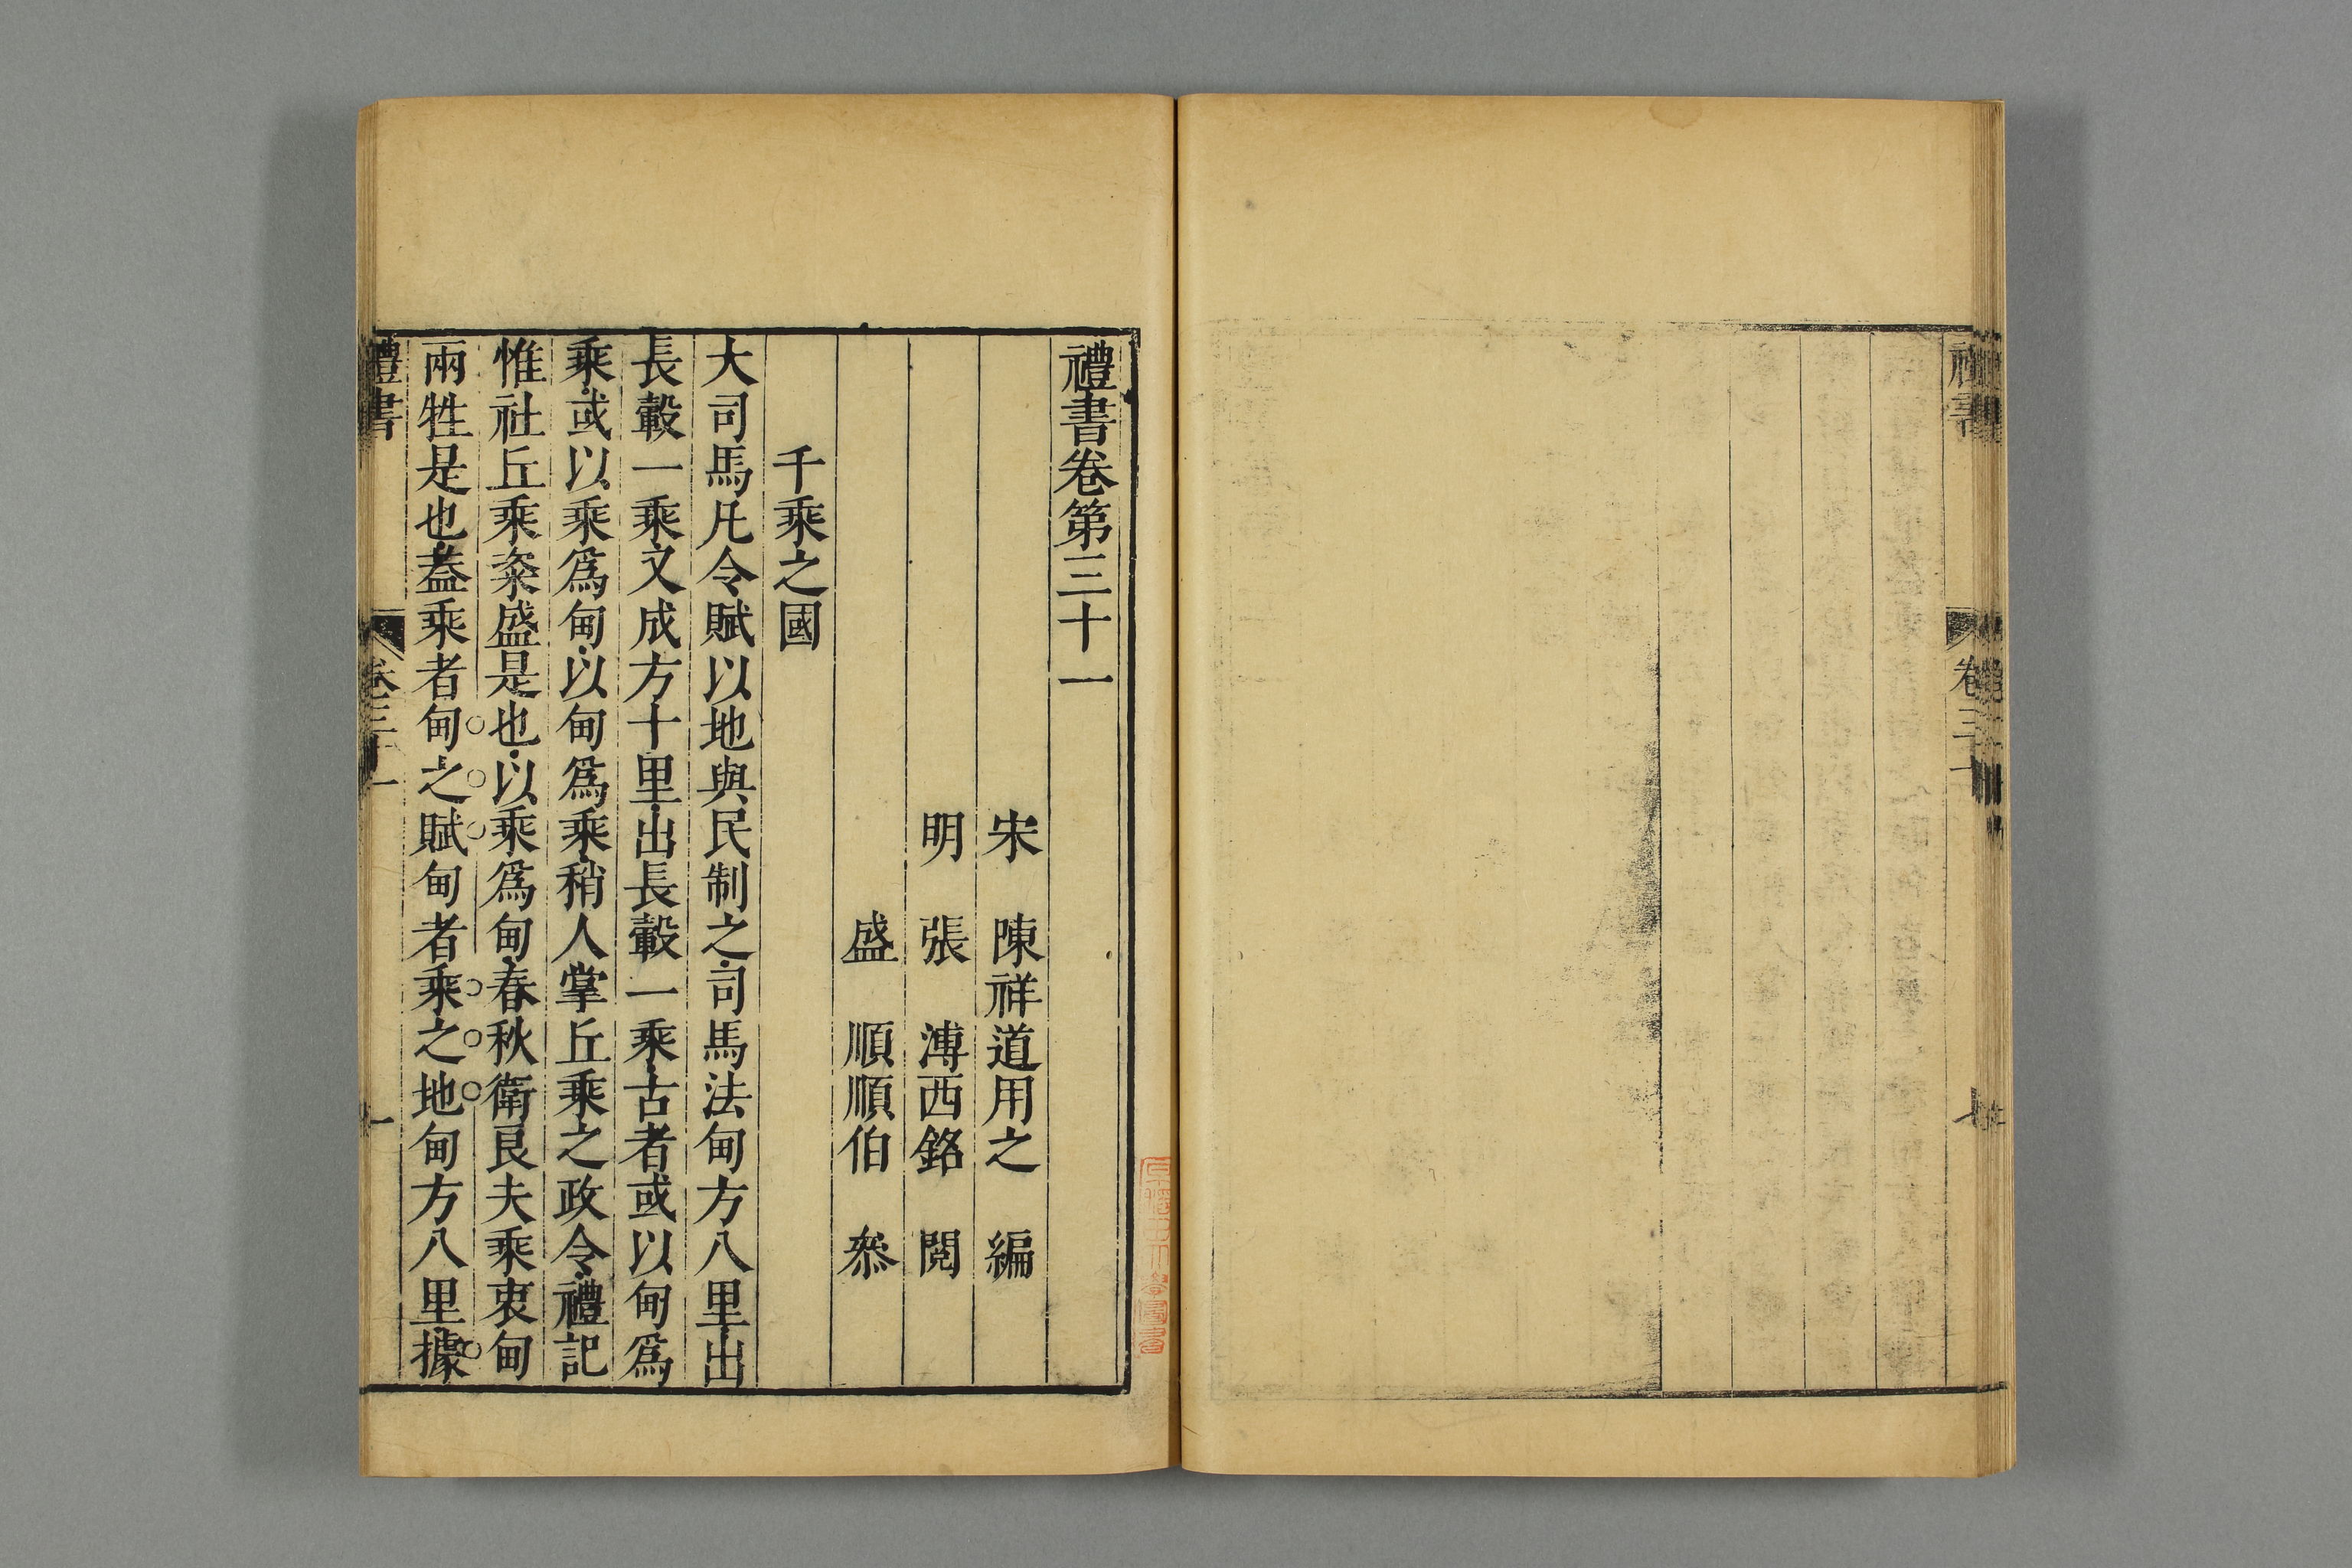 禮書
卷三十
七
禮書卷第三十一
宋 陳祥道用之 編
明 張 溥西銘 閱
盛 順順伯 叅
千乘之國
大司馬凡令賦以地與民制之司馬法甸方八里出
長轂一乘又成方十里出長轂一乘古者或以甸爲
乘或以乘爲甸以甸爲乘稍人掌丘乘之政令禮記
惟社丘乘粢盛是也以乘爲甸春秋衛良夫乘衷甸
兩牲是也葢乘者甸之賦甸者乘之地甸方八里據
禮書
卷三十一
一